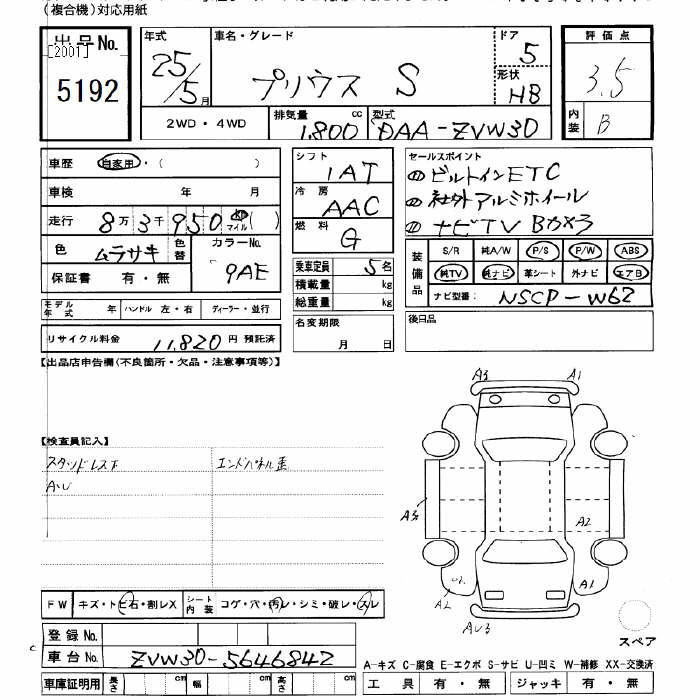 (複合機)対応用紙
出品No.
[2001]
5192
年式
25/5月
車名・グレード
プリウス S
ドア
5
形状
HB
評価点
3.5
内装
B
2WD・4WD
排気量
1,800 cc
型式
DAA-ZVW30
車歴 自家用・( )
車検 年 月
走行 8万3千950 km マイル ( )
色 ムラサキ 色替
カラーNo.
9AE
保証書 有・無
シフト
1AT
冷房
AAC
燃料
G
セールスポイント
① ビルトインETC
② 社外アルミホイール
③ ナビTV Bカメラ
乗車定員 5名
積載量 kg
総重量 kg
装備品
S/R 純A/W P/S P/W ABS
純TV 純ナビ 革シート 外ナビ エアB
ナビ型番: NSCP-W62
モデル年式 年 ハンドル 左・右 ディーラー・並行
名変期限
月 日
後日品
リサイクル料金 11,820 円 預託済
【出品店申告欄(不良箇所・欠品・注意事項等)】
A3 A1
【検査員記入】
スタッドレス下
エンドパネル歪
A・U
A3
A2
A2
A1
AU3
FW キズ・トビ石・割レX
シート内装 コゲ・穴・汚レ・シミ・破レ・スレ
登録No.
車台No. ZVW30-5646842
スペア
A-キズ C-腐食 E-エクボ S-サビ U-凹ミ W-補修 XX-交換済
車庫証明用 長さ cm 幅 cm 高さ cm
工具 有・無 ジャッキ 有・無